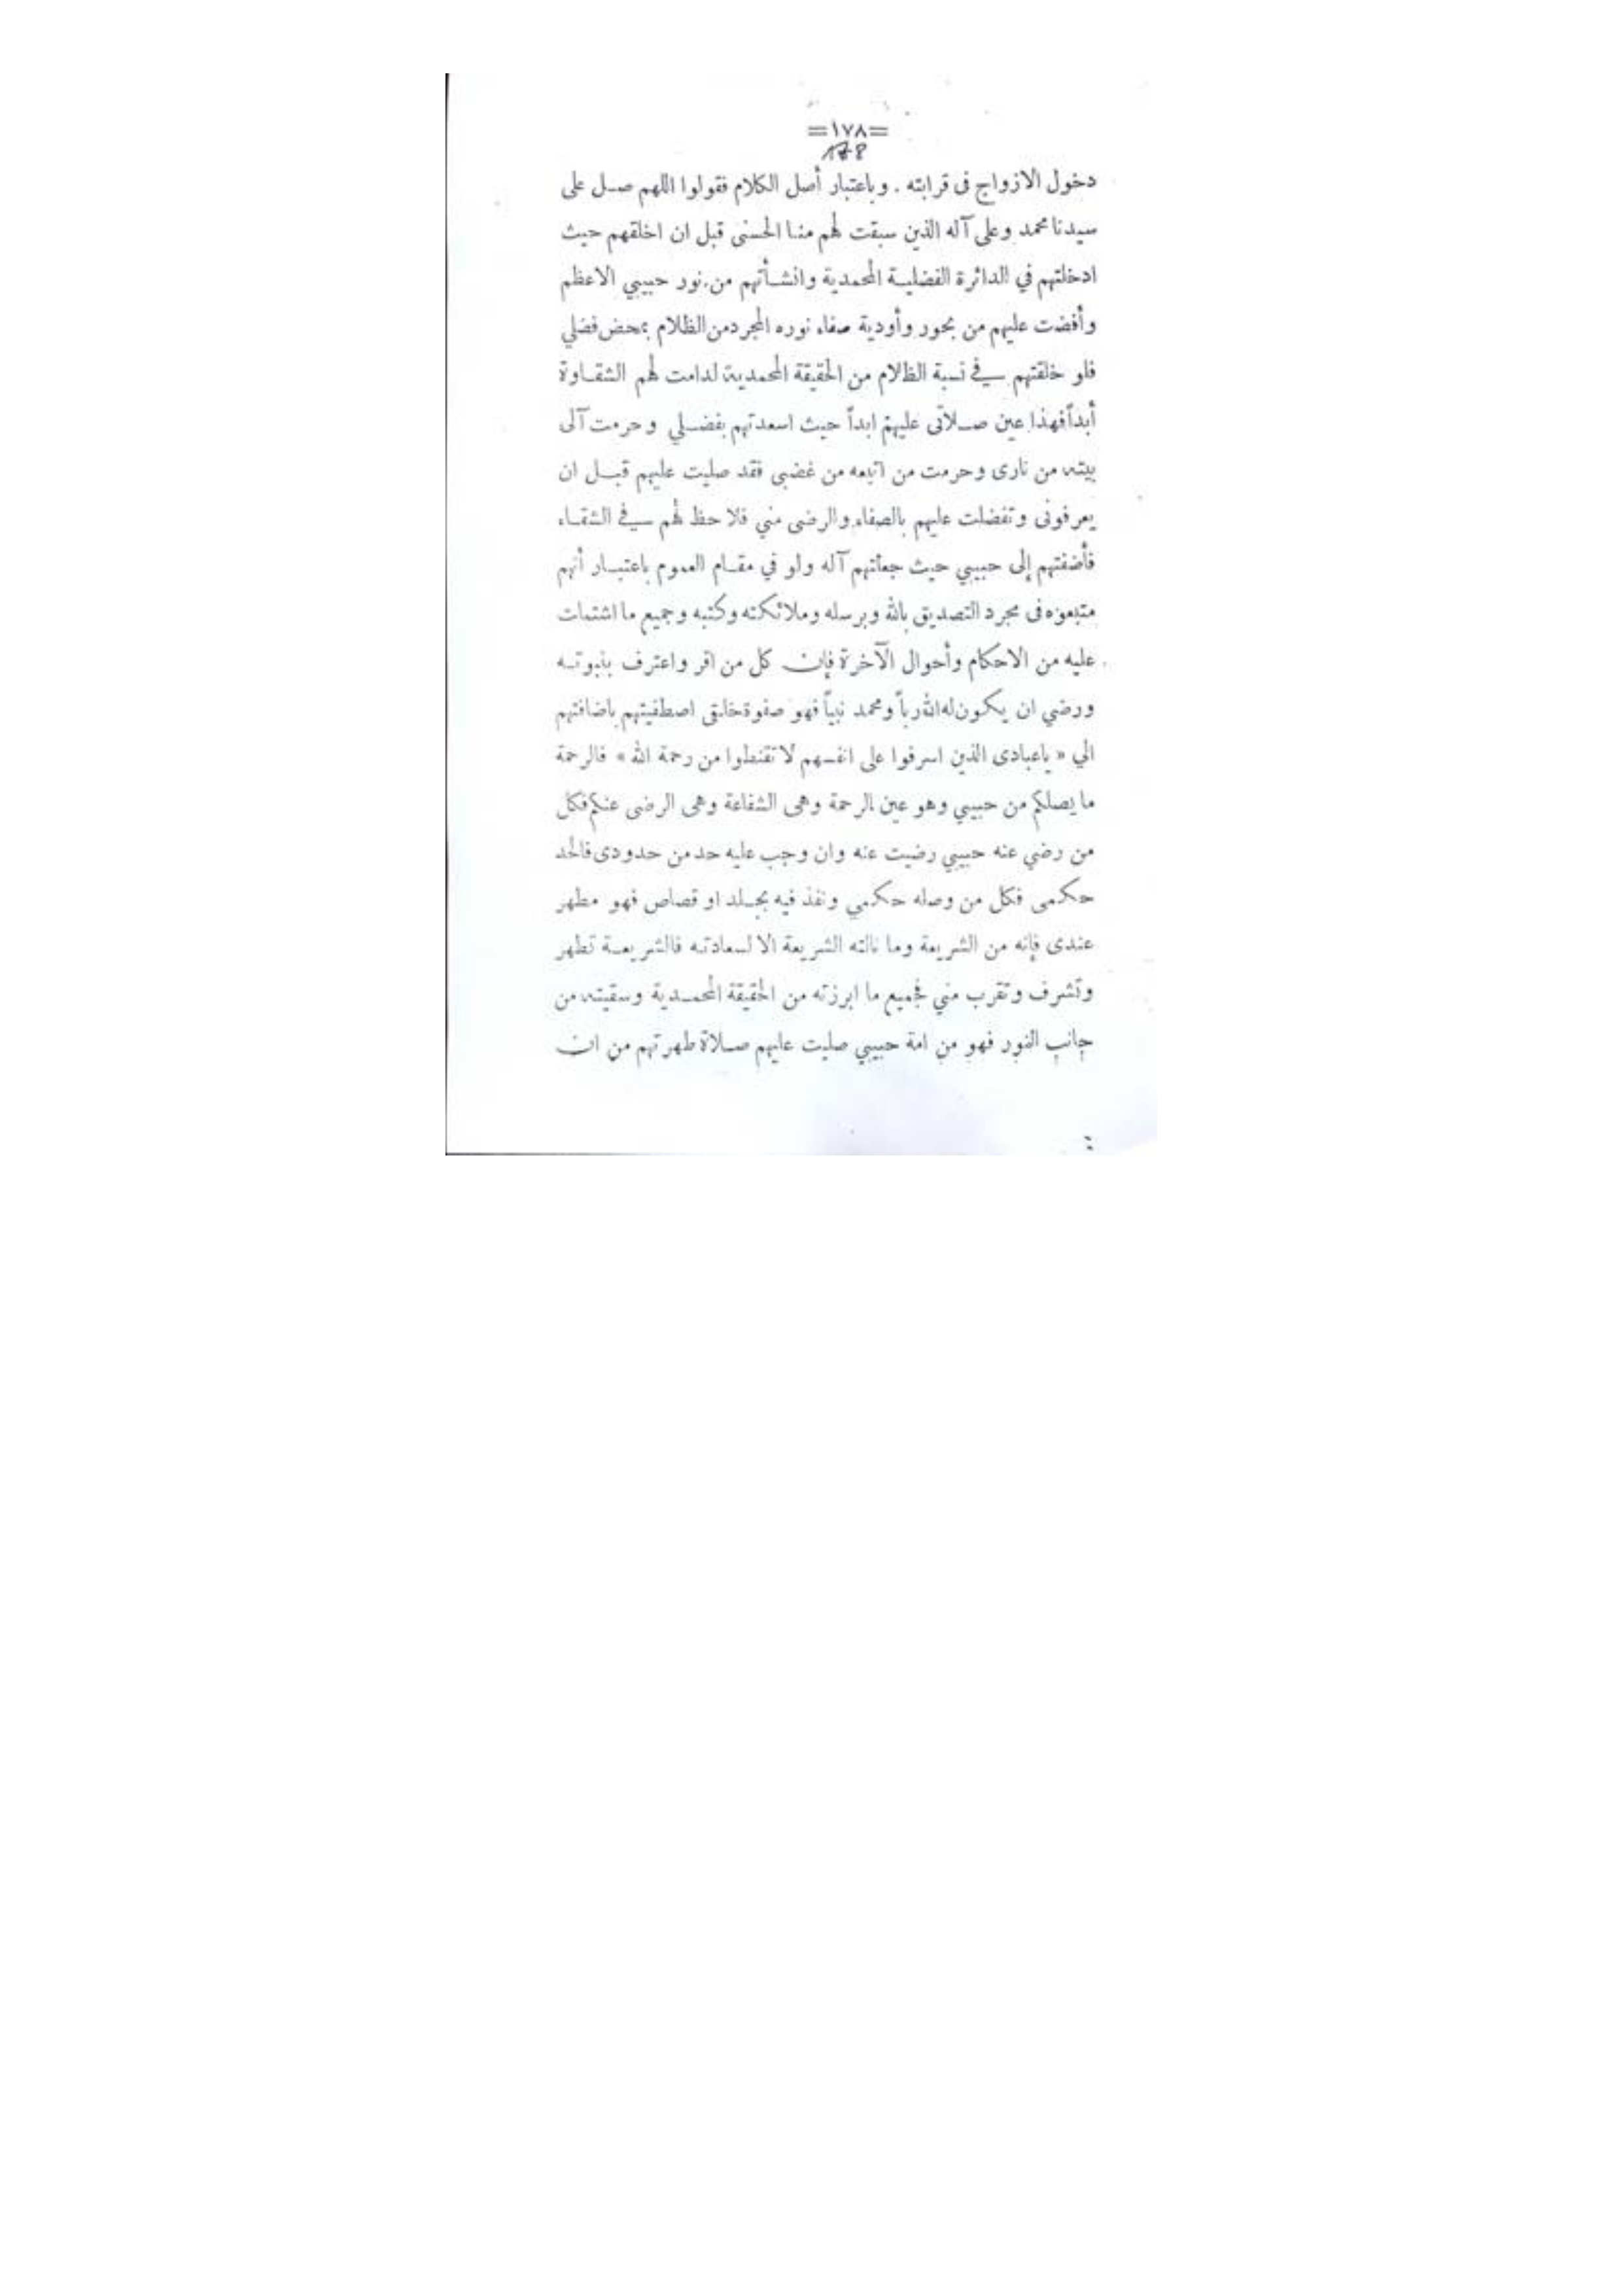 =١٧٨=
178
دخول الازواج فى قرابته . وباعتبار أصل الكلام فقولوا اللهم صل على
سيدنا محمد وعلى آله الذين سبقت لهم منا الحسنى قبل ان اخلقهم حيث
ادخلتهم في الدائرة الفضلية المحمدية وانشأتهم من نور حبيبي الاعظم
وأفضت عليهم من بحور وأودية صفاء نوره المجرد من الظلام بمحض فضلي
فلو خلقتهم في نسبة الظلام من الحقيقة المحمدية لدامت لهم الشقاوة
أبداً فهذا عين صلاتى عليهم ابداً حيث اسعدتهم بفضلي وحرمت آلى
بيته من نارى وحرمت من اتبعه من غضبى فقد صليت عليهم قبل ان
يعرفونى وتفضلت عليهم بالصفاء والرضى مني فلا حظ لهم في الشقاء
فأضفتهم إلى حبيبي حيث جعلتهم آله ولو في مقام العموم باعتبار أنهم
متبعوه فى مجرد التصديق بالله وبرسله وملائكته وكتبه وجميع ما اشتملت
عليه من الاحكام وأحوال الآخرة فإن كل من اقر واعترف بنبوته
ورضي ان يكون له الله رباً ومحمد نبياً فهو صفوة خلقى اصطفيتهم باضافتهم
الي « ياعبادى الذين اسرفوا على انفسهم لا تقنطوا من رحمة الله » فالرحمة
ما يصلكم من حبيبي وهو عين الرحمة وهى الشفاعة وهى الرضى عنكم فكل
من رضي عنه حبيبي رضيت عنه وان وجب عليه حد من حدودى فالحد
حكمى فكل من وصله حكمي ونفذ فيه بجلد او قصاص فهو مطهر
عندى فإنه من الشريعة وما نالته الشريعة الا لسعادته فالشريعة تطهر
وتشرف وتقرب مني فجميع ما ابرزته من الحقيقة المحمدية وسقيته من
جانب النور فهو من امة حبيبي صليت عليهم صلاة طهرتهم من ان